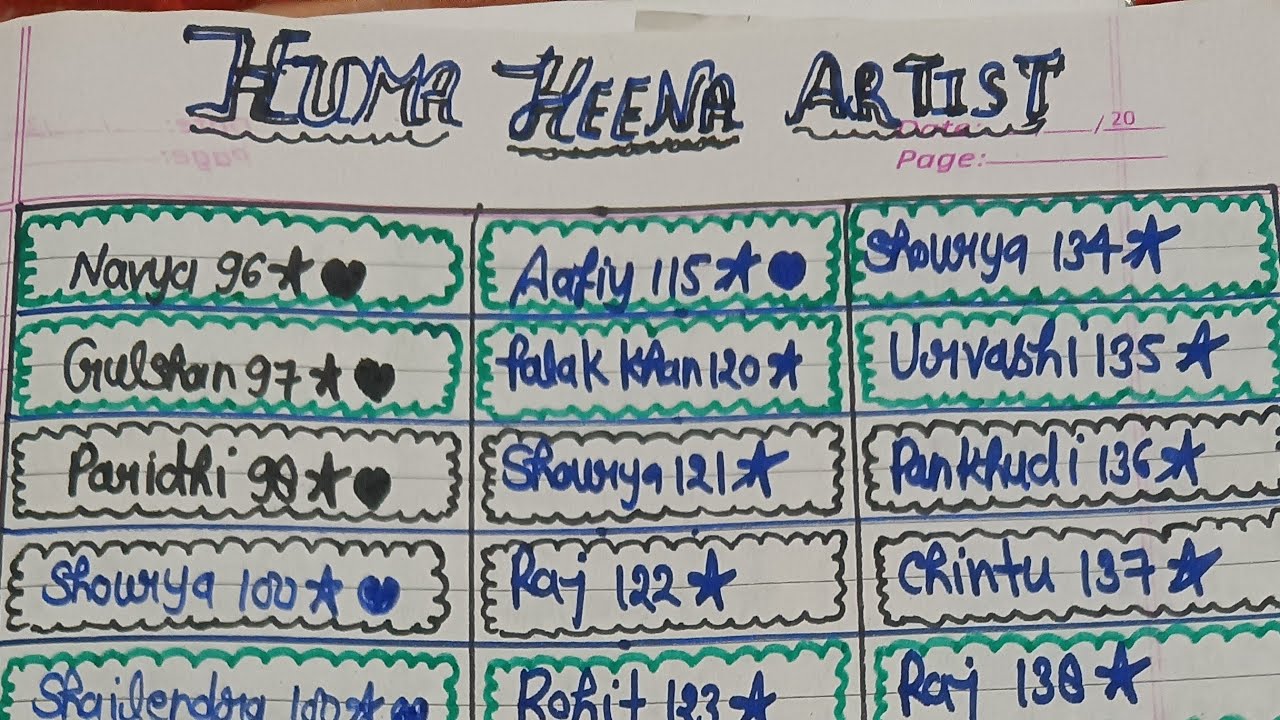 HUMA HEENA ARTIST
Date: / /20
Page:
Navya 96 ★ ♥
Aafiy 115 ★ ♥
Shourya 134 ★
Gulshan 97 ★ ♥
falak khan 120 ★
Urvashi 135 ★
Paridhi 98 ★ ♥
Shourya 121 ★
Pankhudi 136 ★
Shourya 100 ★ ♥
Raj 122 ★
Chintu 137 ★
Shailendra ★ ♥
Rohit 123 ★
Raj 138 ★